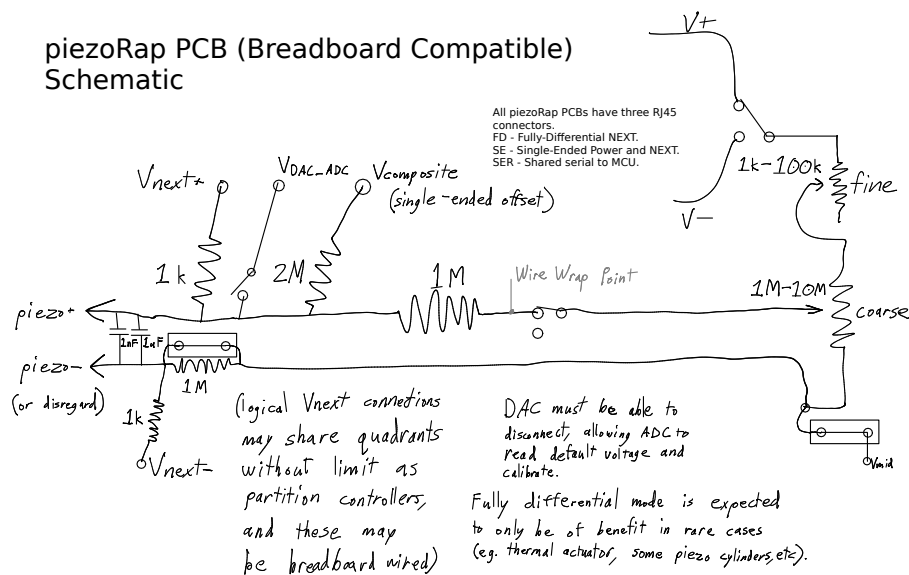 piezoRap PCB (Breadboard Compatible)
Schematic
V+
All piezoRap PCBs have three RJ45
connectors.
FD - Fully-Differential NEXT.
SE - Single-Ended Power and NEXT.
SER - Shared serial to MCU.
1k-100k
fine
V-
Vnext+
VDAC_ADC
Vcomposite
(single-ended offset)
1k
2M
1M
Wire Wrap Point
1M-10M
coarse
piezo+
1nF
1nF
piezo-
(or disregard)
1M
1k
Vnext-
(logical Vnext connetions
may share quadrants
without limit as
partition controllers,
and these may
be breadboard wired)
DAC must be able to
disconnect, allowing ADC to
read default voltage and
calibrate.
Vmid
Fully differential mode is expected
to only be of benefit in rare cases
(e.g. thermal actuator, some piezo cylinders, etc).